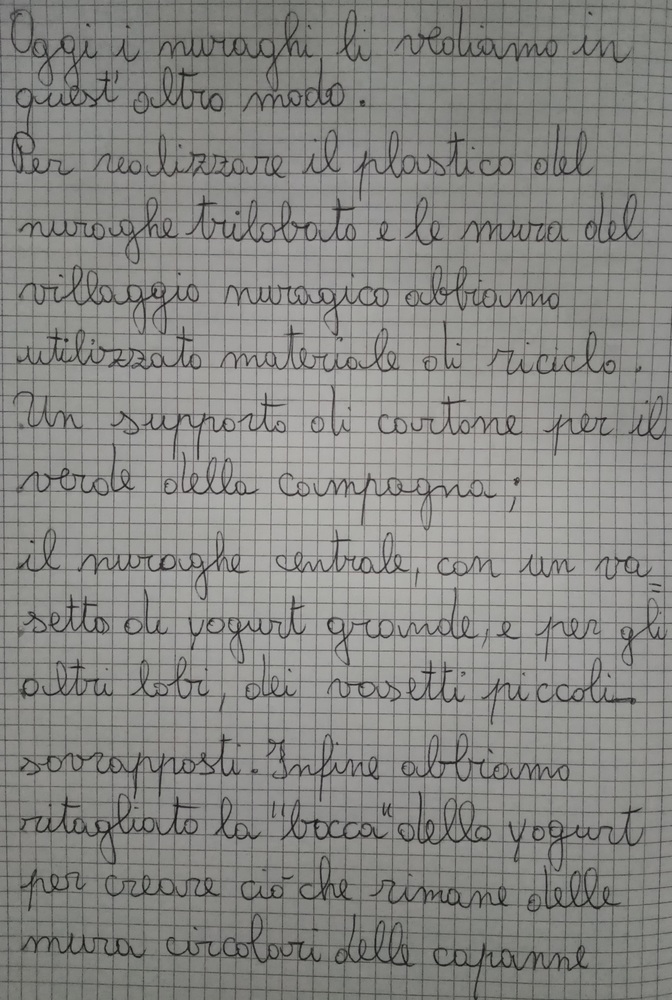 Oggi i nuraghi li vediamo in
quest'altro modo.
Per realizzare il plastico del
nuraghe trilobato e le mura del
villaggio nuragico abbiamo
utilizzato materiale di riciclo.
Un supporto di cartone per il
verde della campagna;
il nuraghe centrale, con un va=
setto di yogurt grande, e per gli
altri lobi, dei vasetti piccoli
sovrapposti. Infine abbiamo
ritagliato la "bocca" dello yogurt
per creare ciò che rimane delle
mura circolari delle capanne